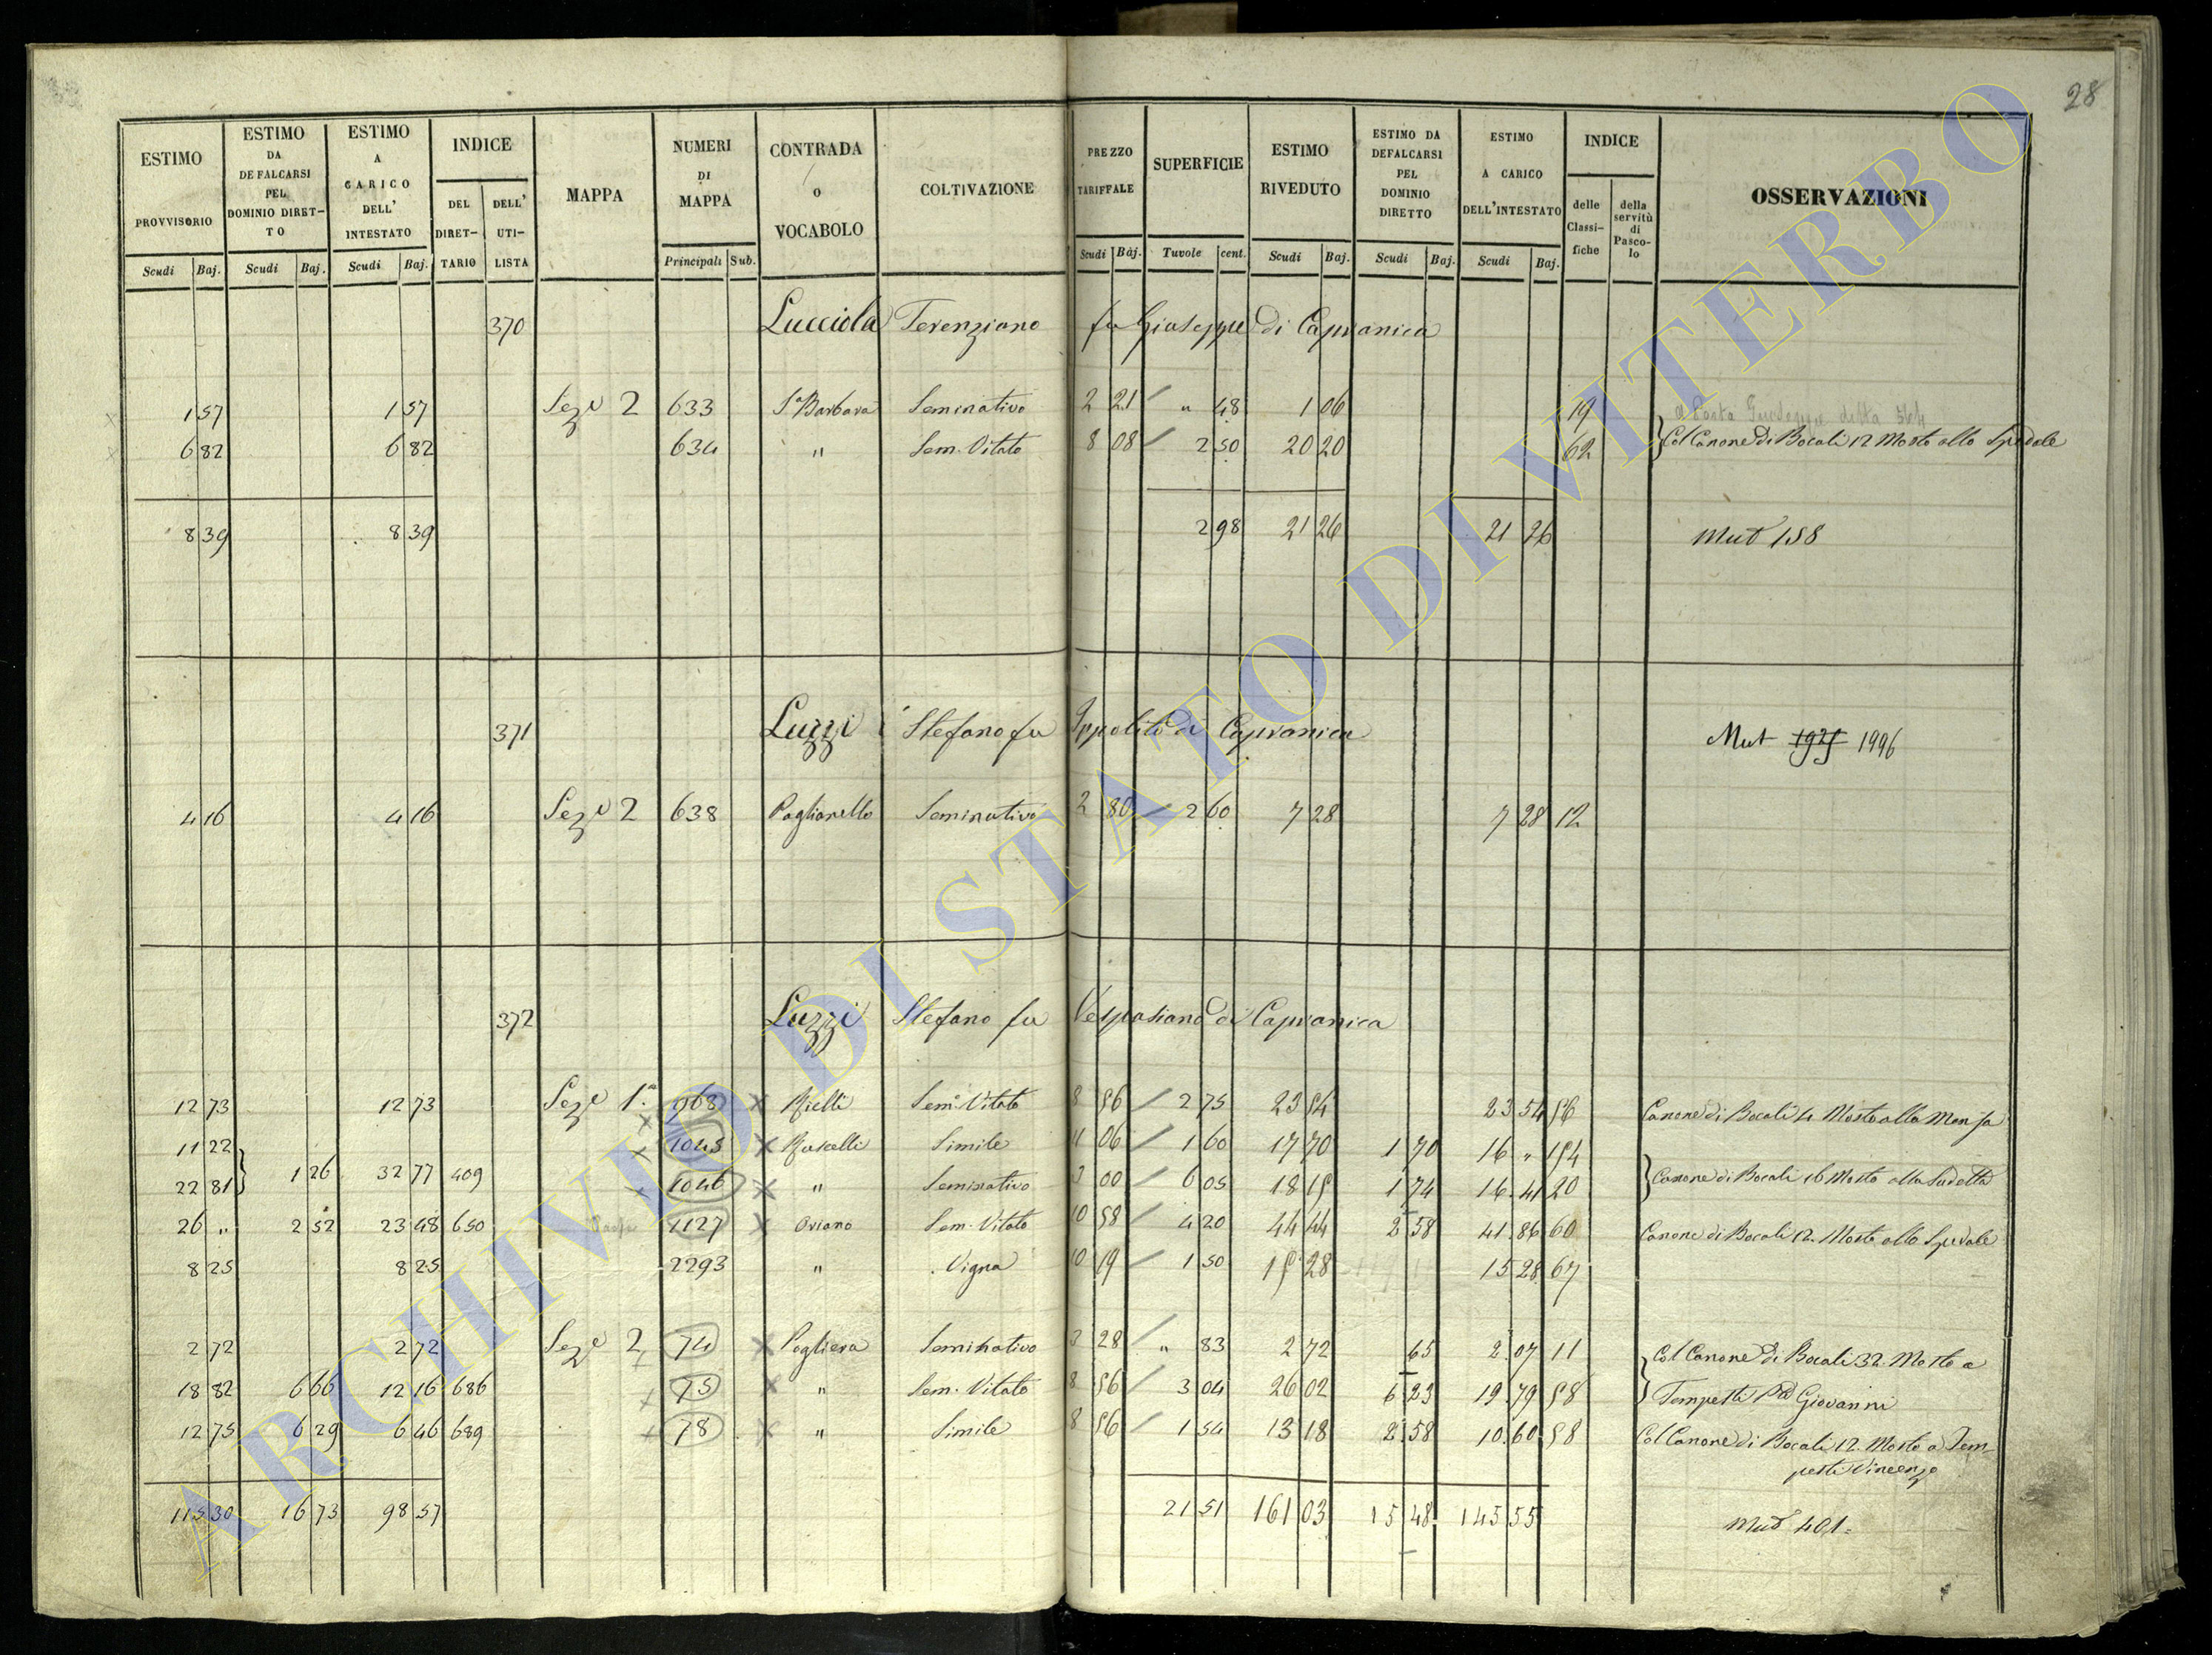 28
ESTIMO PROVVISORIO Scudi Baj.
ESTIMO DA DEFALCARSI PEL DOMINIO DIRET-TO Scudi Baj.
ESTIMO A CARICO DELL' INTESTATO Scudi Baj.
INDICE DEL DIRET-TARIO DELL' UTI-LISTA
MAPPA
NUMERI DI MAPPA Principali Sub.
CONTRADA o VOCABOLO
COLTIVAZIONE
PREZZO TARIFFALE Scudi Baj.
SUPERFICIE Tuvole cent.
ESTIMO RIVEDUTO Scudi Baj.
ESTIMO DA DEFALCARSI PEL DOMINIO DIRETTO Scudi Baj.
ESTIMO A CARICO DELL'INTESTATO Scudi Baj.
INDICE delle Classi-fiche della servitù di Pasco-lo
OSSERVAZIONI
370 Lucciola Terenziano fu Giuseppe di Capranica
1 57 1 57 Seze 2 633 Sa Barbara Seminativo 2 21 " 48 1 06 19
6 82 6 82 634 " Sem. Vitato 8 08 2 50 20 20 62 Col Canone di Bocali 12 Mosto allo Spedale
8 39 8 39 2 98 21 26 21 26 Mut 158
371 Luzzi Stefano fu Ippolito di Capranica Mut 1925 1996
4 16 4 16 Seze 2 638 Paglianello Seminativo 2 80 2 60 7 28 7 28 12
372 Luzzi Stefano fu Vespasiano di Capranica
12 73 12 73 Seze 1a 968 Rielli Sem. Vitato 8 56 2 75 23 54 23 54 56 Canone di Bocali 4 Mosto alla Mensa
11 22 1043 Ruscelli Simile 11 06 1 60 17 70 1 70 16 " 54
22 81 1 26 32 77 409 1046 " Seminativo 3 00 6 05 18 15 1 74 16 41 20 Canone di Bocali 16 Mosto alla Sudetta
26 " 2 52 23 48 650 1127 Oriano Sem. Vitato 10 58 4 20 44 44 2 58 41 86 60 Canone di Bocali 12 Mosto allo Spedale
8 25 8 25 2293 " Vigna 10 19 1 50 15 28 15 28 67
2 72 2 72 Seze 2 74 Pagliera Seminativo 3 28 " 83 2 72 65 2 07 11 Col Canone di Bocali 32 Mosto a
18 82 6 66 12 16 686 75 " Sem. Vitato 8 56 3 04 26 02 6 23 19 79 58 Tempesti Giovanni
12 75 6 29 6 46 689 78 " Simile 8 56 1 54 13 18 2 58 10 60 58 Col Canone di Bocali 12 Mosto a Tem-
pesti Vincenzo
115 30 16 73 98 57 21 51 161 03 15 48 145 55 Mut 401
ARCHIVIO DI STATO DI VITERBO